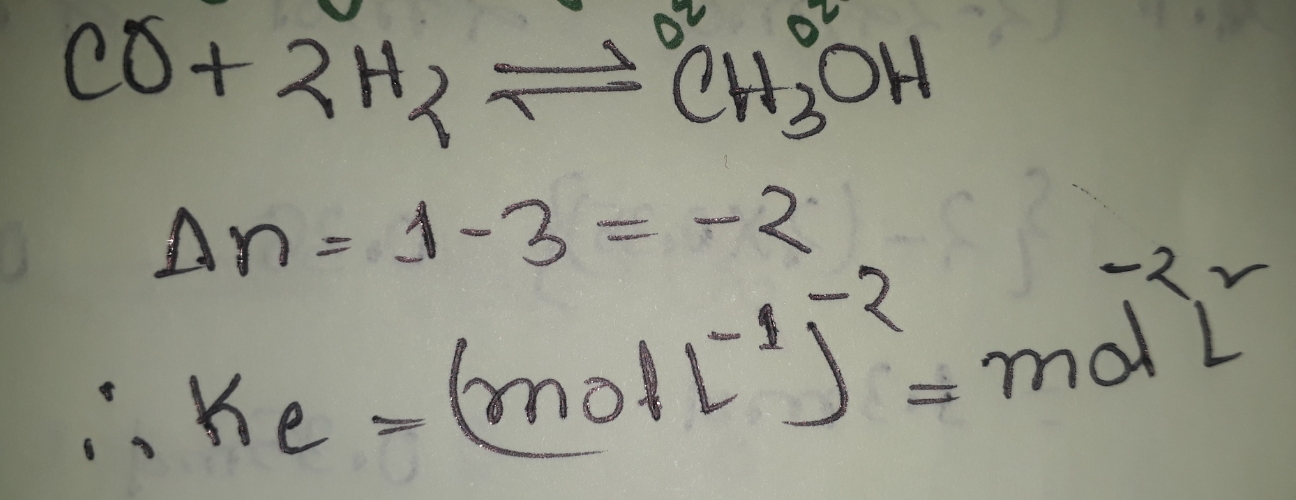 CO + 2H₂ ⇌ CH₃OH
Δn = 1 - 3 = -2
∴ Kc = (mol L⁻¹)⁻² = mol⁻² L²